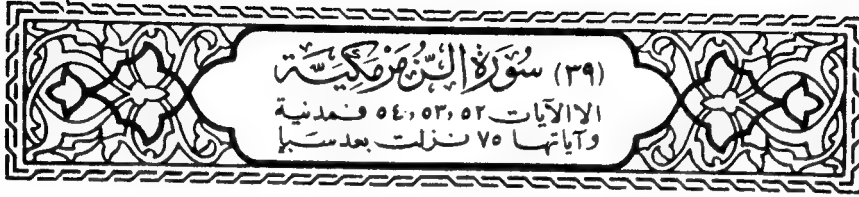 (٣٩) سُورَة الزُّمَر مَكيَّة
الا الآيات ٥٢، ٥٣، ٥٤ فمدنية
وآياتها ٧٥ نزلت بعد سبإ